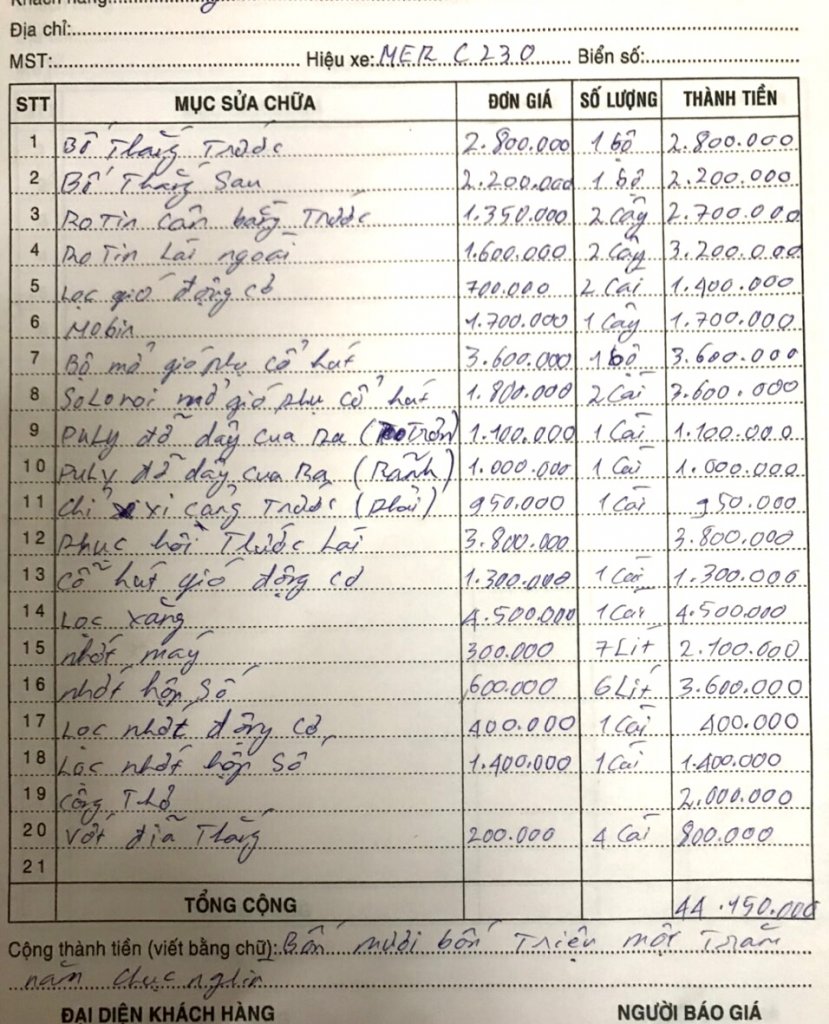 Khách hàng:
Địa chỉ:
MST: Hiệu xe: MER C230 Biển số:
STT MỤC SỬA CHỮA ĐƠN GIÁ SỐ LƯỢNG THÀNH TIỀN
1 Bố Thắng Trước 2.800.000 1 bộ 2.800.000
2 Bố Thắng Sau 2.200.000 1 bộ 2.200.000
3 RoTin cân bằng Trước 1.350.000 2 cây 2.700.000
4 RoTin Lái ngoài 1.600.000 2 cây 3.200.000
5 Lọc gió động cơ 700.000 2 cái 1.400.000
6 Mobin 1.700.000 1 cây 1.700.000
7 Bộ mở gió phụ cổ hút 3.600.000 1 bộ 3.600.000
8 SoLonoi mở gió phụ cổ hút 1.800.000 2 cái 3.600.000
9 PuLy đỡ dây cua Ra (Trơn) 1.100.000 1 cái 1.100.000
10 PuLy đỡ dây cua Ra (Rãnh) 1.000.000 1 cái 1.000.000
11 Chỉ xi cảng Trước (phải) 950.000 1 cái 950.000
12 Phục hồi Thước Lái 3.800.000 3.800.000
13 Cổ hút gió động cơ 1.300.000 1 cái 1.300.000
14 Lọc xăng 4.500.000 1 cái 4.500.000
15 nhớt máy 300.000 7 Lít 2.100.000
16 nhớt hộp Số 600.000 6 Lít 3.600.000
17 Lọc nhớt động cơ 400.000 1 cái 400.000
18 Lọc nhớt hộp Số 1.400.000 1 cái 1.400.000
19 Công Thợ 2.000.000
20 Vớt đĩa Thắng 200.000 4 cái 800.000
21
TỔNG CỘNG 44.150.000
Cộng thành tiền (viết bằng chữ): Bốn mươi bốn Triệu một Trăm
năm chục nghìn
ĐẠI DIỆN KHÁCH HÀNG NGƯỜI BÁO GIÁ